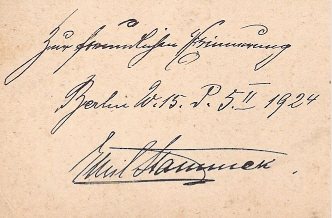 Zur freundlichen Erinnerung
Berlin W. 15. d. 5. II 1924
Emil